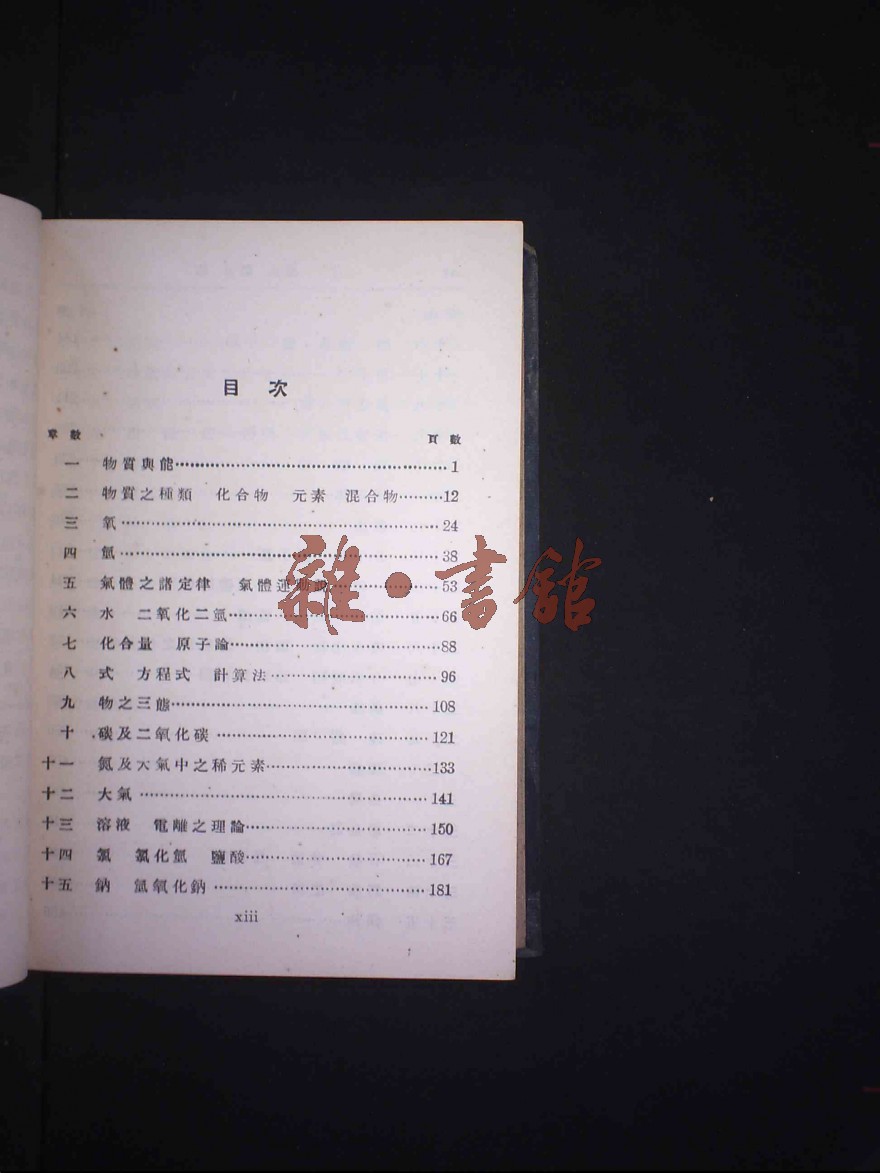 目 次
章數 頁數
一 物質與能 1
二 物質之種類 化合物 元素 混合物 12
三 氧 24
四 氫 38
五 氣體之諸定律 氣體運動說 53
六 水 二氧化二氫 66
七 化合量 原子論 88
八 式 方程式 計算法 96
九 物之三態 108
十 碳及二氧化碳 121
十一 氮及大氣中之稀元素 133
十二 大氣 141
十三 溶液 電離之理論 150
十四 氯 氯化氫 鹽酸 167
十五 鈉 氫氧化鈉 181
xiii
雜·書館